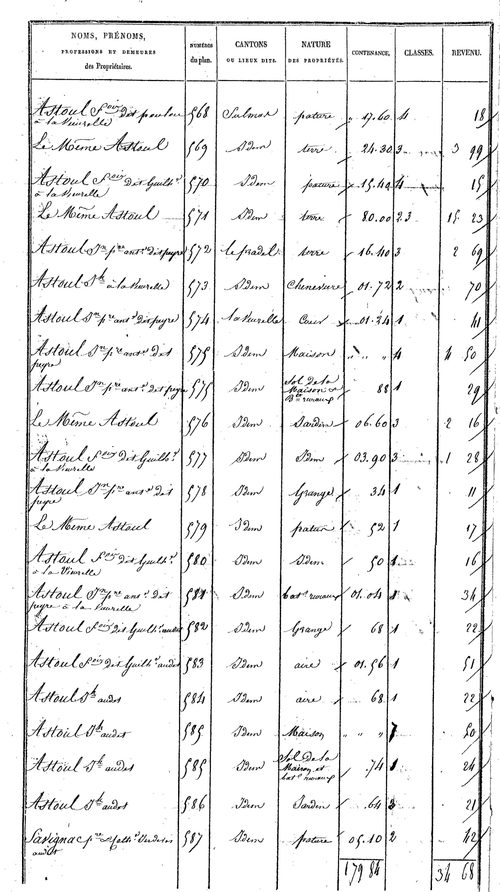 NOMS, PRÉNOMS, PROFESSIONS ET DEMEURES des Propriétaires. NUMÉROS du plan. CANTONS OU LIEUX DITS. NATURE DES PROPRIÉTÉS. CONTENANCE. CLASSES. REVENU.
Astoul fois dit 568 Salmos pature " 17.60 4 18
à la Veurelle
Le Même Astoul 569 Idem terre 24.30 3 3 99
Astoul fois dit Guilh.e 570 Idem pature 15.40 4 15
à la Veurelle
Le Même Astoul 571 Idem terre 80.00 2.3 15 23
Astoul Jn pre ant.e dit peyre 572 le pradel terre 16.40 3 2 69
Astoul Jh à la Veurelle 573 Idem Cheneviere 01.72 2 70
Astoul Jn pre ant.e dit peyre 574 la Veurelle 01.24 1 41
Astoul Jn pre ant.e dit 575 Idem Maison " " " 4 4 50
peyre
Astoul Jn pre ant.e dit peyre 575 Idem Sol de la Maison et 88 1 29
Le Même Astoul 576 Idem Jardin 06.60 3 2 16
Astoul fois dit Guilh.e 577 Idem Idem 03.90 3 1 28
à la Veurelle
Astoul Jn pre ant.e dit 578 Idem Grange 34 1 11
peyre
Le Même Astoul 579 Idem patur 52 1 17
Astoul fois dit Guilh.e 580 Idem Idem 50 1 16
à la Veurelle
Astoul Jn pre ant.e dit 581 Idem bat.t ruraux 01.04 1 34
peyre à la Veurelle
Astoul fois dit Guilh.e audit 582 Idem Grange 68 1 22
Astoul fois dit Guilh.e audit 583 Idem aire 01.56 1 51
Astoul Jh audit 584 Idem aire 68 1 22
Astoul Jh audit 585 Idem Maison " " 7 50
Astoul Jh audit 585 Idem Sol de la Maison et bat.t ruraux 74 1 24
Astoul Jh audit 586 Idem Jardin 64 21
Savignac 587 Idem pature 05.10 2 42
audit
179 84 34 68